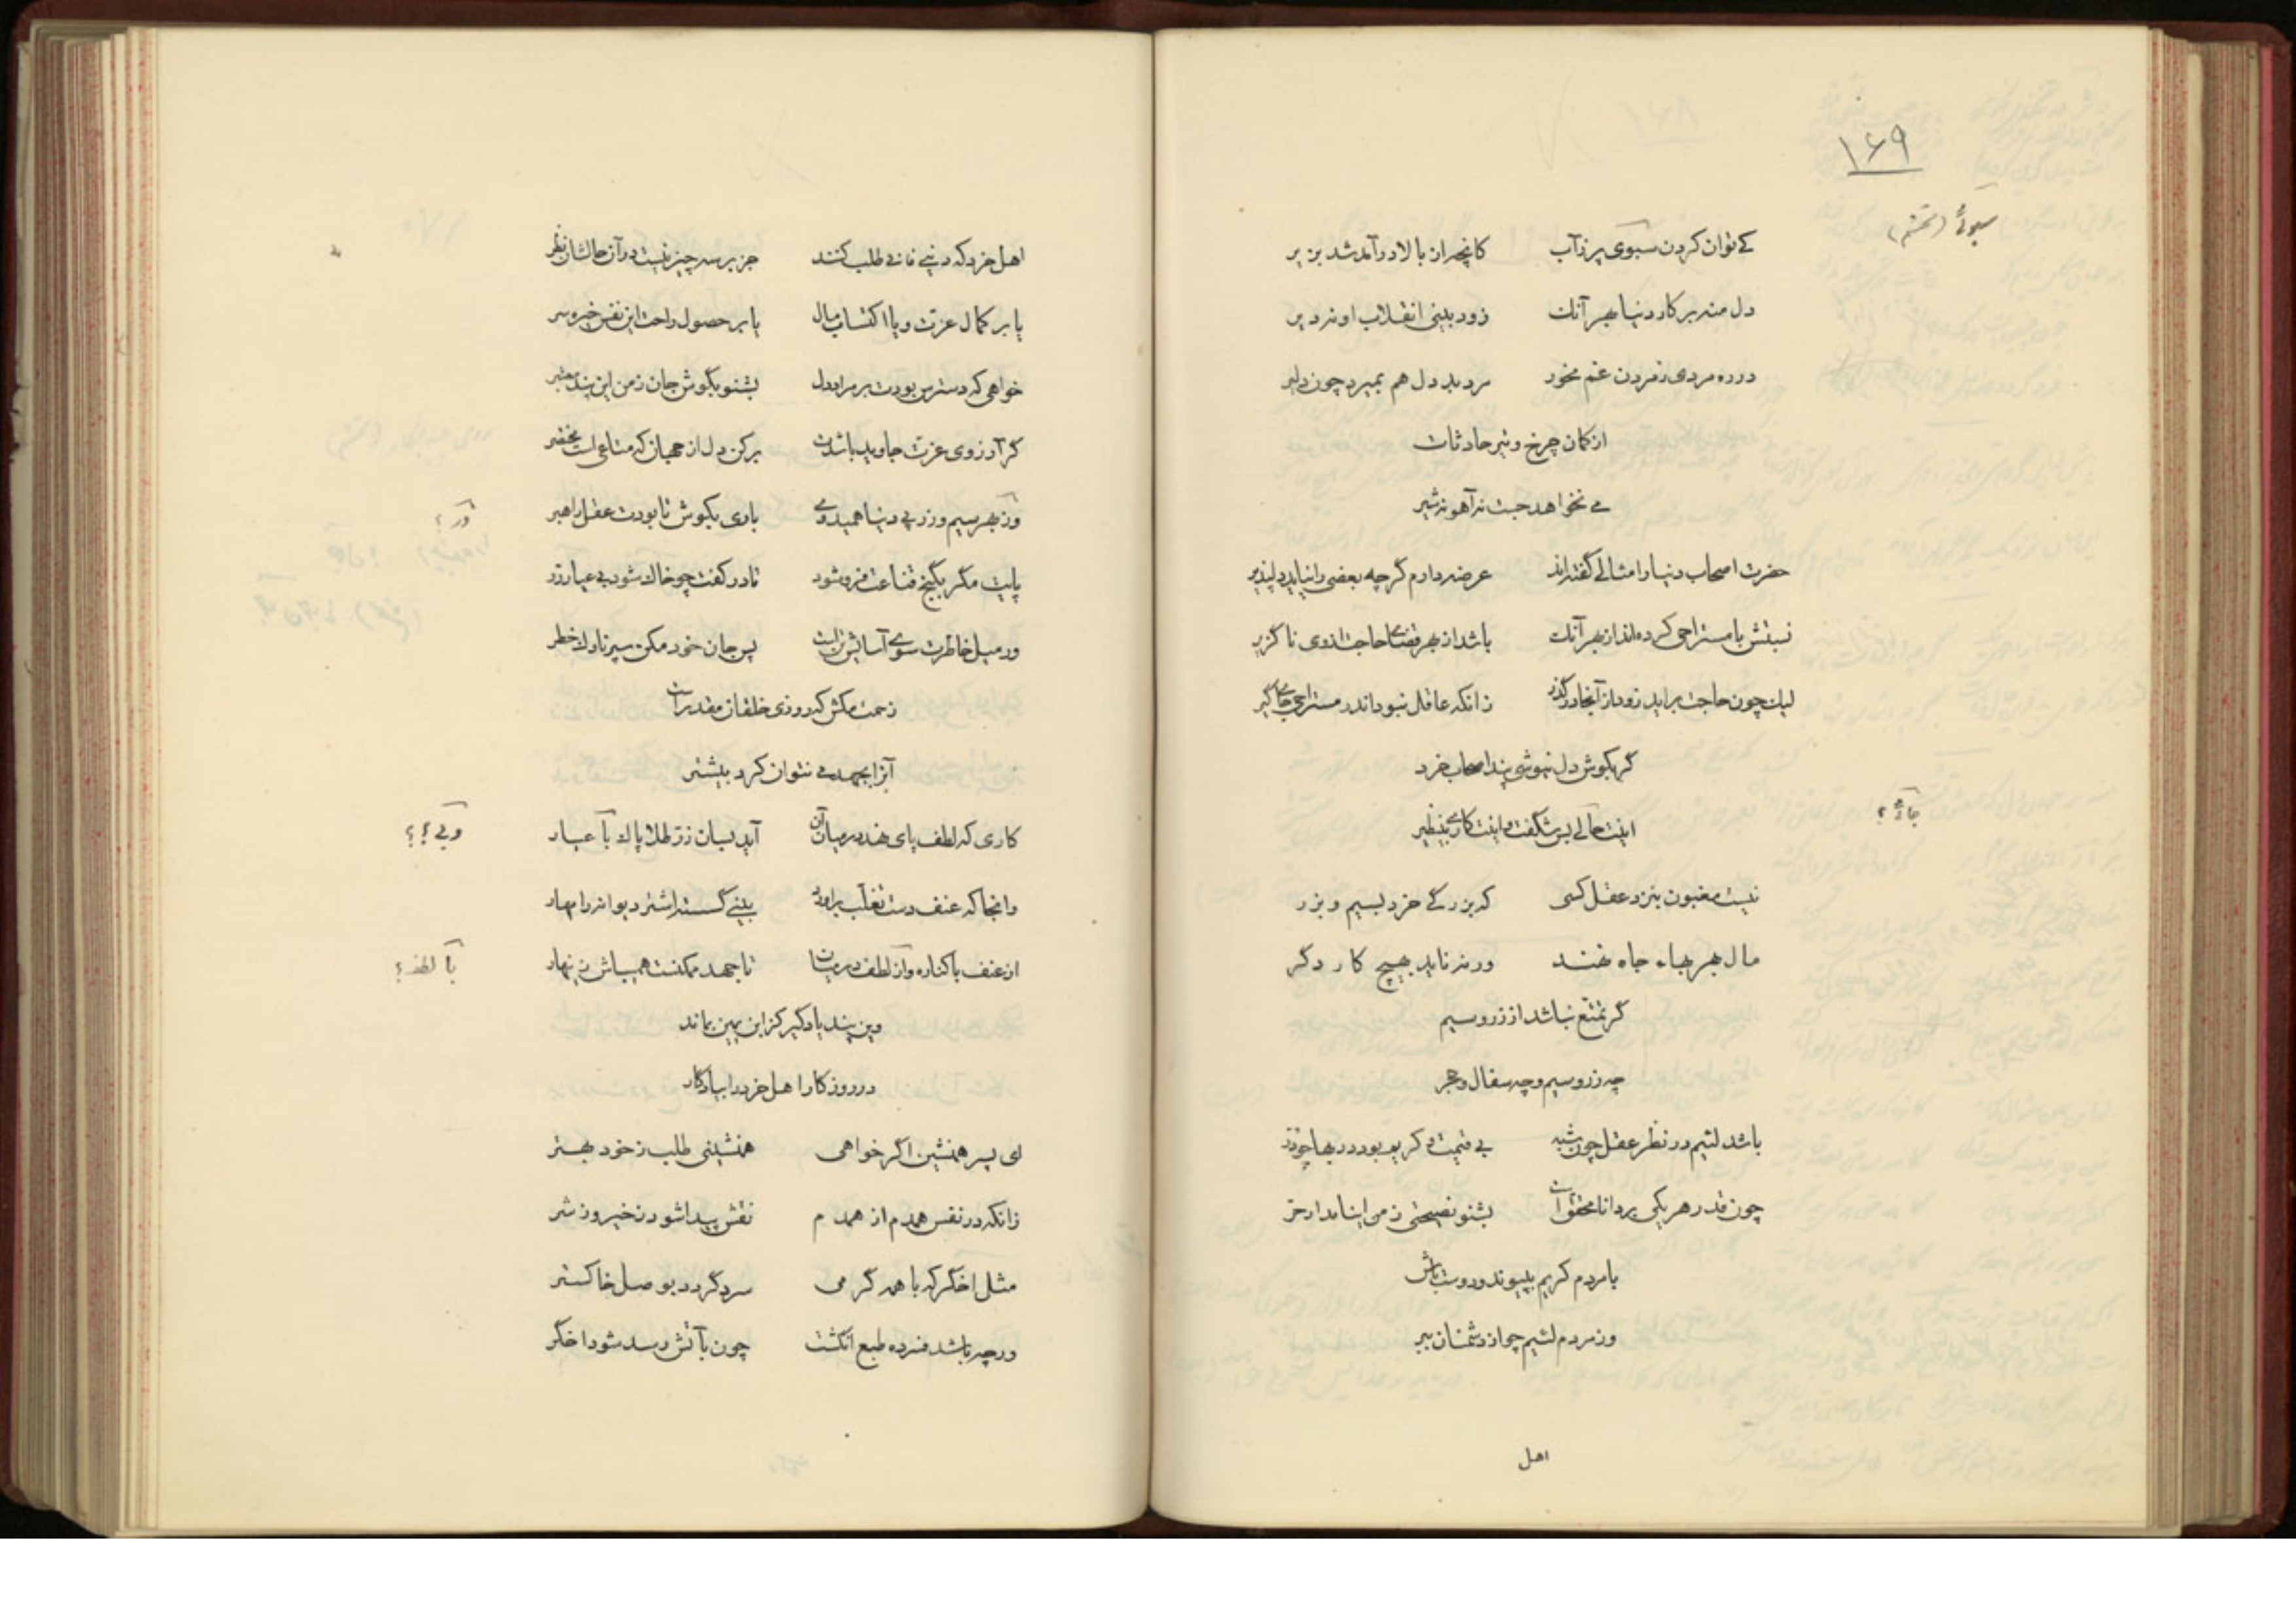 ۱۶۹
سبوئی (تحشم)
کے توان کردن سبوی پر زآب کانچه از بالا درآمد شد بزیر
دل منه بر کار دنیا بهر آنک زود بینی انقلاب او نه دیر
در ره مردی ز مردن غم مخور مرد بد دل هم بمیرد چون دلیر
از کمان چرخ و تیر حادثات
مے نخواهد جست نه آهو نه شیر
حضرت اصحاب دنیا را مثالے گفته اند عرضه دارم گرچه بعضی را نیاید دلپذیر
نسبتش با مستراحی کرده اند از بهر آنک باشد از بهر قضاے حاجت از وی ناگزیر
لیک چون حاجت براید زود از آنجا درگذر زانکه عاقل نبود اندر مستراحے جاے گیر
گر بگوش دل نیوشی پند اصحاب خرد
اینت حالے بس شگفت و اینت کارے بینظیر
جائے ؟
نیست مغبون بنزد عقل کسی که بزرگے خرد بسیم و بزر
مال بهر بهاء جاه نهند ورنه ناید بهیچ کار دگر
گر تمتع نباشد از زر و سیم
چه زر و سیم و چه سفال و حجر
باشد لئیم در نظر عقل چون شبه بے قیمت و کریم بود در بها چو زر
چون قدر هر یکی بر دانا محقق است بشنو نصیحتی ز من اینامدار حر
با مردم کریم بپیوند و دوست باش
وز مردم لئیم چو از دشمنان ببر
اهل
اهل خرد که دنیے فانے طلب کنند جز بر سه چیز نیست در آن حالشان نظر
یا بر کمال عزت و یا اکتساب مال یا بر حصول راحت این نفس خیره سر
خواهی که دسترس بودت بر مراد دل بشنو بگوش جان ز من این پند معتبر
گر آرزوی عزت جاوید باشدت برکن دل از جهان که متاعی است مختصر
ور بهر سیم و زر پے دنیا همیدوے باری بکوش تا بودت عقل راهبر
ور ؟
پایت مگر بگنج قناعت فرو شود تا در کفت چو خاک شود بے عیار زر
ور میل خاطرت سوے آسایش تن است پس جان خود مکن سپر ناوک خطر
زحمت مکش که روزی خلقان مقدر است
آنرا بجهد مے نتوان کرد بیشتر
کاری که لطف پای نهد در میان آن آید بسان زر طلا پاک با عیار
وانجا که عنف دست تغلب براورد بینے گسسته اشتر دیوانه را مهار
از عنف با کناره و از لطف در میان تا جهد ممکنست همیباش زینهار
با لطف ؟
وین پند یاد گیر کز ابن یمین بماند
در روزگار اهل خرد را بیادگار
ای پسر همنشین اگر خواهی همنشینی طلب ز خود بهتر
زانکه در نفس همدم از همدم نقش پیدا شود ز خیر و ز شر
مثل اخگر که با همه گرمی سرد گردد بوصل خاکستر
ورچه باشد فسرده طبع انگشت چون بآتش رسد شود اخگر